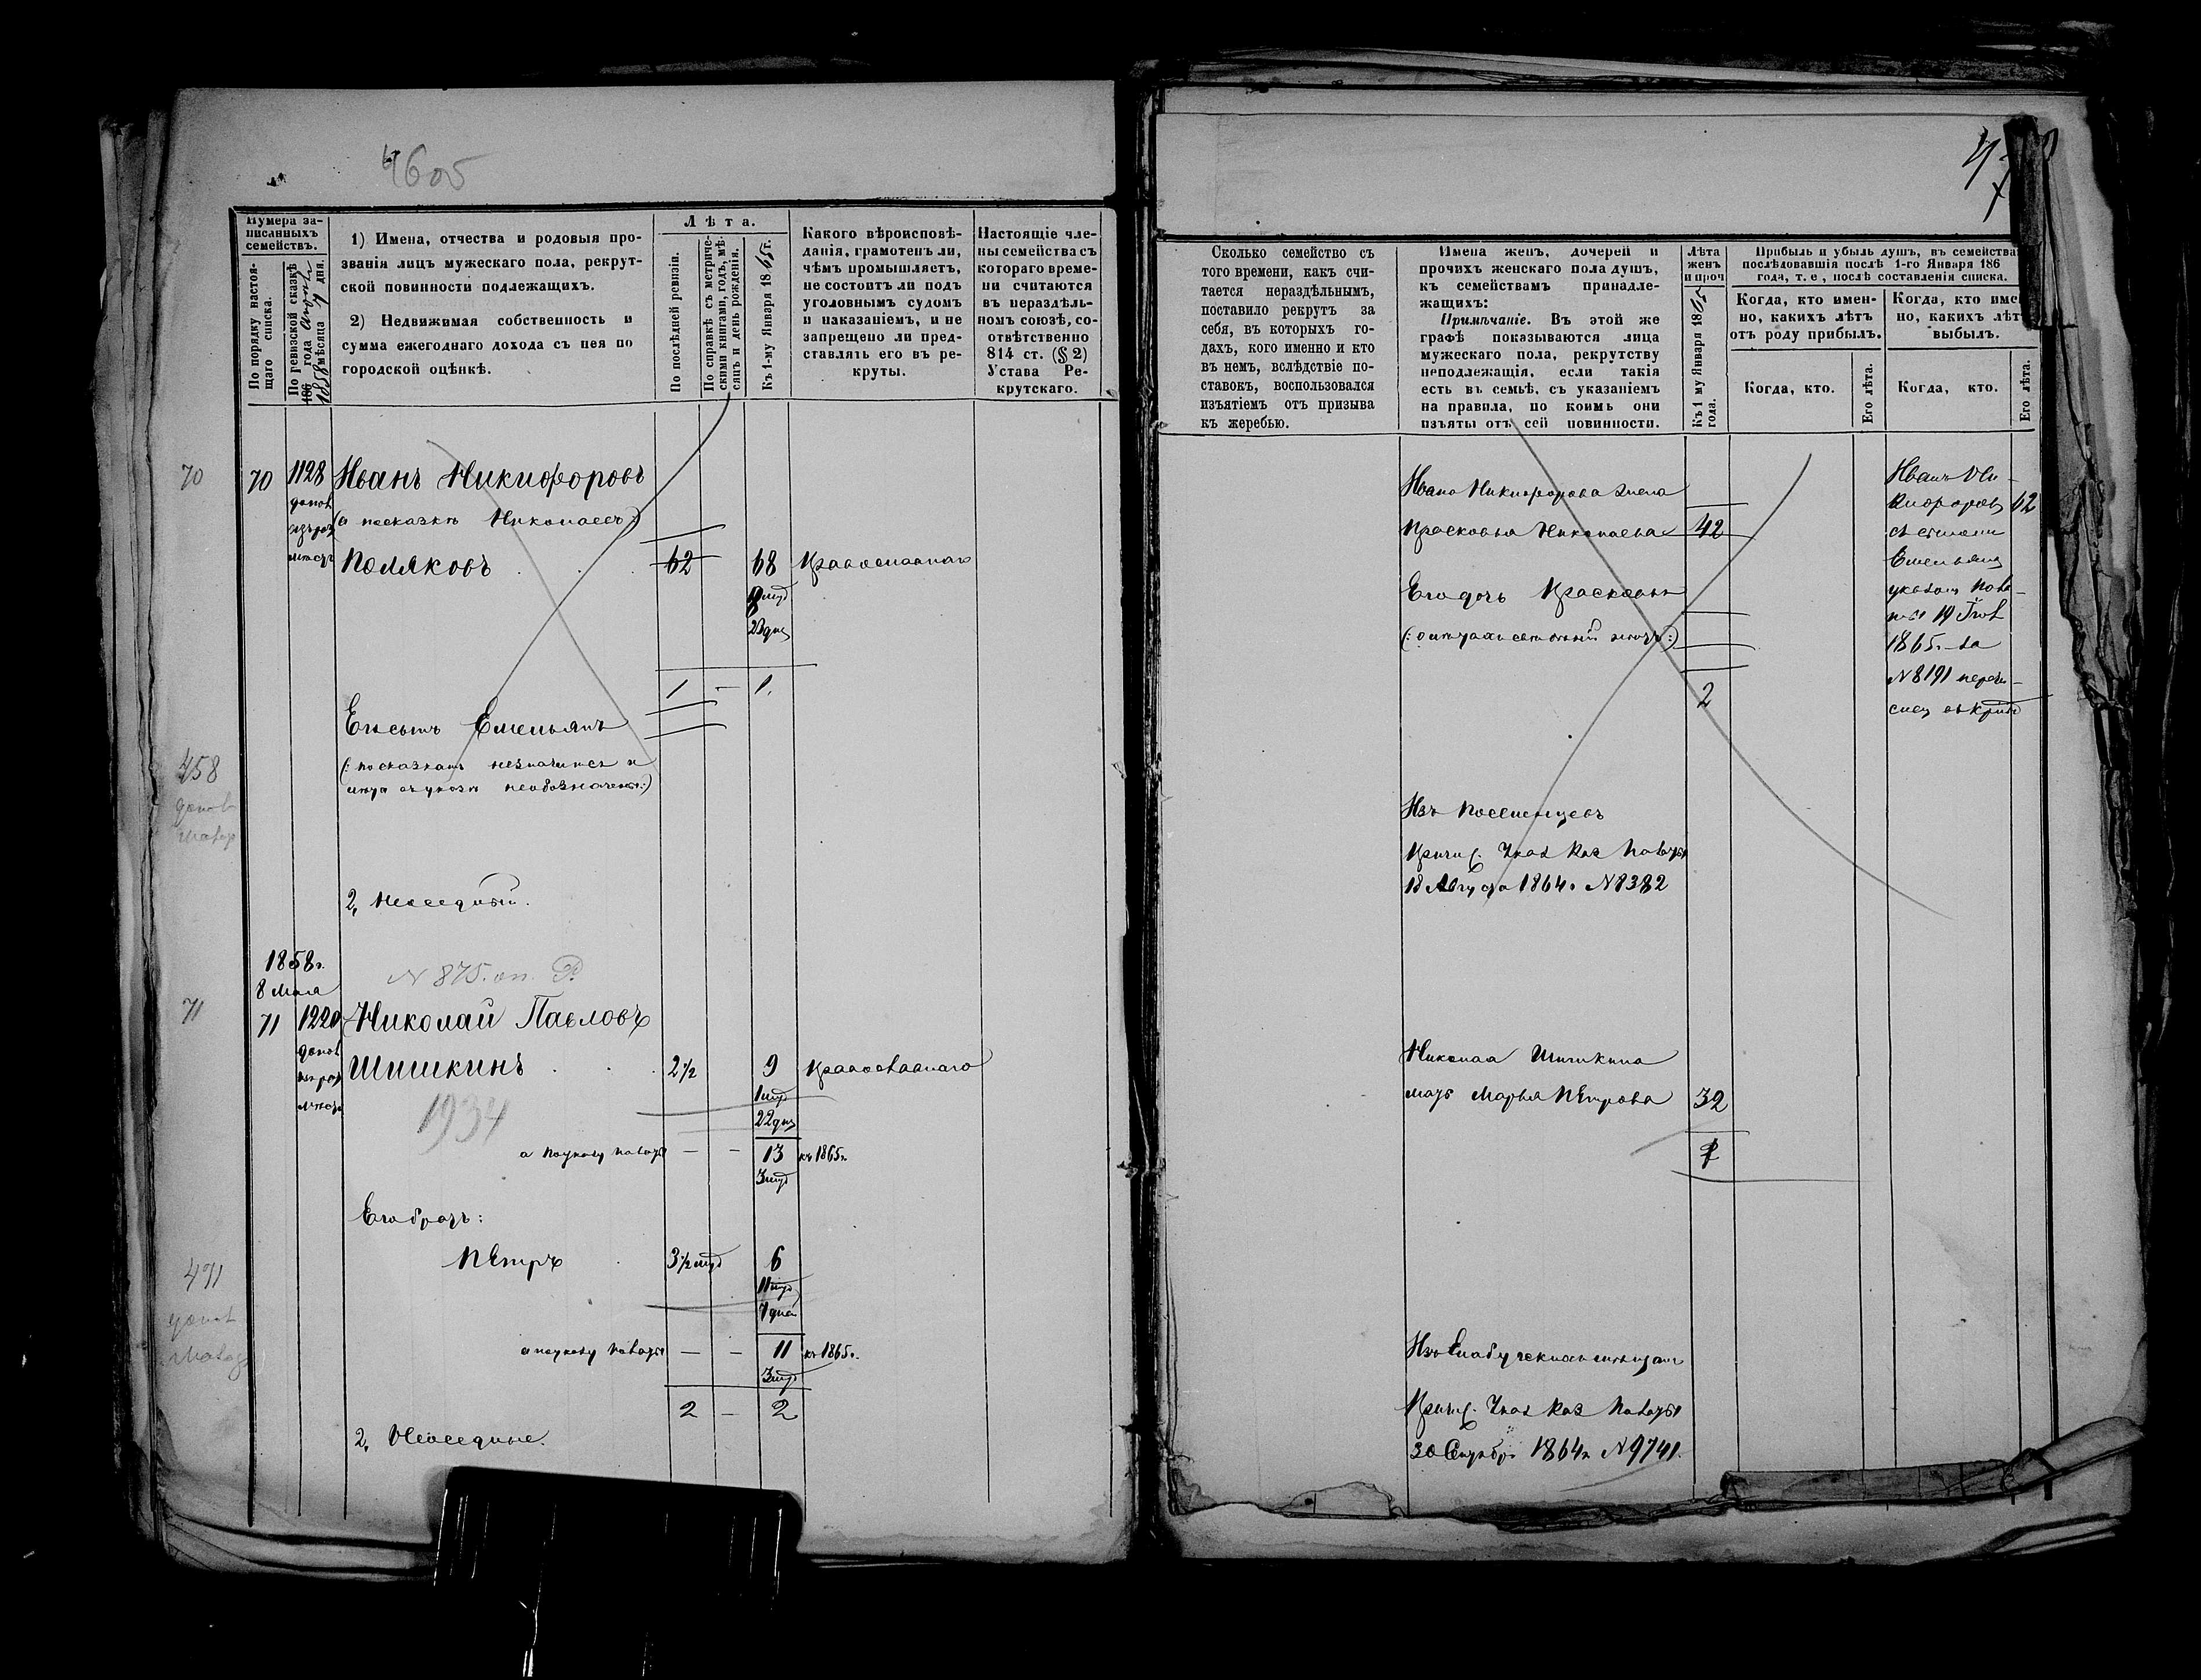 4605
Нумера за-
писанныхъ
семействъ.
По порядку настоя-
щаго списка.
По ревизской сказкѣ
186 года
1858 мѣсяца дня.
1) Имена, отчества и родовыя про-
званія лицъ мужескаго пола, рекрут-
ской повинности подлежащихъ.
2) Недвижимая собственность и
сумма ежегоднаго дохода съ нея по
городской оцѣнкѣ.
Лѣта.
По послѣдней ревизіи.
По справкѣ съ метриче-
скими книгами, годъ, мѣ-
сяцъ и день рожденія.
Къ 1-му Января 1865 г.
Какого вѣроисповѣ-
данія, грамотенъ ли,
чѣмъ промышляетъ,
не состоитъ ли подъ
уголовнымъ судомъ
и наказаніемъ, и не
запрещено ли пред-
ставлять его въ ре-
круты.
Настоящіе чле-
ны семейства съ
котораго време-
ни считаются
въ нераздѣль-
номъ союзѣ, со-
отвѣтственно
814 ст. (§ 2)
Устава Ре-
крутскаго.
70
70 1128 Иванъ Никифоровъ
допол
(а по сказкѣ Николаевъ)
Поляковъ 62 68 Православнаго
23 дня
1 — 1.
Его сынъ Емельянъ
458
2, Неоседлый.
1858 г.
8 Мая
N 875. оп. Р.
71
71 1220 Николай Павловъ
допол
Шишкинъ 2½ 9 Православнаго
22 дня
1934
а по указу Палаты — — 13 къ 1865 г.
Его братъ:
Петръ 3½ 6
7 дней
471
а по указу Палаты — — 11 къ 1865 г.
2 — 2
2, Неоседлые.
Сколько семейство съ
того времени, какъ счи-
тается нераздѣльнымъ,
поставило рекрутъ за
себя, въ которыхъ го-
дахъ, кого именно и кто
въ немъ, вслѣдствіе по-
ставокъ, воспользовался
изъятіемъ отъ призыва
къ жеребью.
Имена женъ, дочерей и
прочихъ женскаго пола душъ,
къ семействамъ принадле-
жащихъ:
Примѣчаніе. Въ этой же
графѣ показываются лица
мужескаго пола, рекрутству
неподлежащія, если такія
есть въ семьѣ, съ указаніемъ
на правила, по коимъ они
изъяты отъ сей повинности.
Лѣта
женъ
и проч
Къ 1 му Января 18
года.
Прибыль и убыль душъ, въ семейства
послѣдовавшія послѣ 1-го Января 186
года, т. е, послѣ составленія списка.
Когда, кто имен-
но, какихъ лѣтъ
отъ роду прибылъ.
Когда, кто име
но, какихъ лѣт
выбылъ.
Когда, кто.
Его лѣта.
Когда, кто.
Его лѣта.
Ивана Никифорова жена
Прасковья Николаева 42
Его дочь Прасковья
2
Изъ Поселенцевъ
Причис. Указ Каз Палаты
18 Августа 1864 г. N 8382
Иванъ Ни-
кифоров 62
съ сыномъ
Емельяномъ
указомъ Пала-
ты 19
1865 г. за
N 8191 перечи-
Николая Шишкина
мать Марья Петрова 32
Причис. Указ Каз Палаты
30 Сентября 1864 г. N 9741.